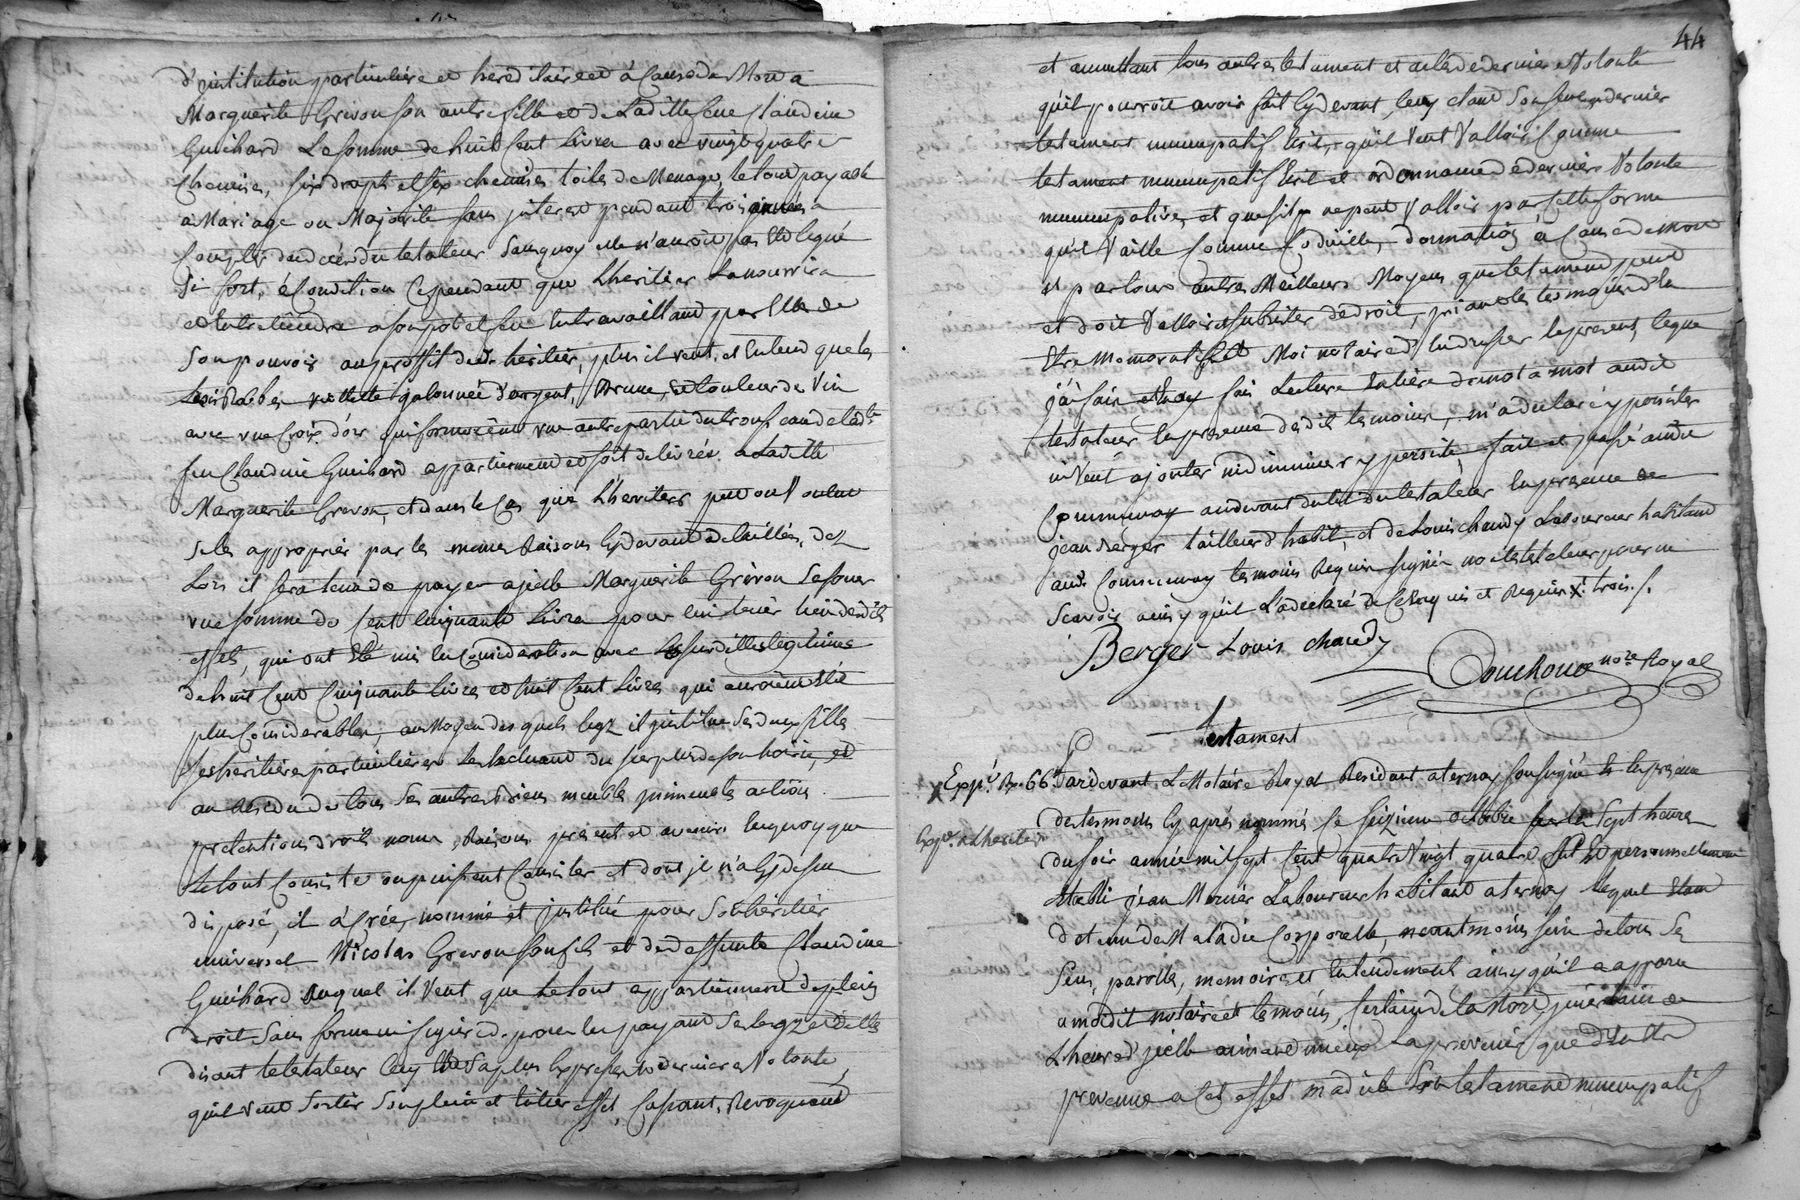 d'institution particuliere et hereditaire et à Cause de Mort a
Marguerite Grivon son autre fille et de Laditte feue Claudine
Guichard La somme de huit Cent Livres avec vingt quatre
Chemises, six draps et six chemises toiles de Menage, le tout payable
a Mariage ou Majorité sans jnterest pendant trois années a
Compter du decés du testateur sans quoy elle n'auroit pas Eté leguée
si fort, à Condition Cependant que L'heritier La nourrira
et Entretiendra a son pot et feu En travaillant par Elle de
son pouvoir au proffit dudt heritier, plus il veut et Entend que les
trois Robbes violette galonnée d'argent, Brune, Et Couleur de Vin
avec une Croix d'or qui formoient une autre partie du trousseau de lade
feu Claudine Guichard appartiennent et soit delivrés a Laditte
Marguerite Grevon, et dans le Cas que L'heritier peu ou Voulut
se les approprier par les memes Raisons Cydevant detaillées, dez
Lors il sera tenu de payer a jcelle Marguerite Grevon sa soeur
une somme de Cent Cinquante Livres pour lui tenir lieu desdits
effets, qui ont Eté mis En Consideration avec Les susdittes legitimes
de huit Cent Cinquante livres et huit Cent Livres qui auroient Eté
plus Considerables, au Moyen des quels legz il jnstitue ses deux filles
ses heritieres particulieres Les Excluant du surplus de son hoirie, et
au Residu de tous ses autres Biens meubles jmmeubles actions
pretentions droits noms Raisons present et avenir En quoy que
Le tout Consiste ou puissent Consister et dont je n'ai Cy dessu
disposé, il à Créé, nommé et jnstitué pour son heritier
universel Nicolas Grevon son fils et de deffunte Claudine
Guichard auquel il Veut que Le tout appartiennent de plein
droit sans forme ni figure de procés En payant ses legz et dettes
disant le testateur Cecy Etre sa plus Expresse et derniere Volonté,
qu'il veut sortir son plein et Entier effet, Cassant, Revoquant
44
et annullant tous autres testament et actes de derniere Volonté
qu'il pourroit avoir fait Cy devant, Ceux etant son seul et dernier
testament nuncupatif Ecrit, qu'il Veut Valloir Comme
testament nuncupatif Ecrit et ordonnance de derniere Volonté
nuncupative, et que s'il ne peut Valloir par Cette forme
qu'il Vaille Comme Codicille, donnation à Cause de mort
et par tous autres Meilleurs Moyens que testament peut
et doit Valloir et subsister de droit, priant les temoins d'En
Etre Memoratifs et Moi notaire d'En dresser le present, Ce que
j'ai fait et En ay fait Lecture Entiere de mot a mot audit
testateur En presence desdit temoins, m'a declaré y persister
ni Veut ajouter ni diminuer y persiste, fait et passé audit
Communay audevant du lit du testateur En presence de
jean Berger tailleur d'habit, et de Louis chaudy Laboureur habitant
audt Communay temoins Requis signés non le testateur pour ne
scavoir ainsy qu'il L'a declaré de Ce Enquis et Requis X trois /.
Berger Louis chaudy
Couchoud nore Royal
Testament
X Exppé p. 66
Expé. a L'heritier
Pardevant Le Notaire Royal Residant a ternay soussigné Et En presence
des temoins Cy aprés nommés Ce seizieme octobre sur les sept heures
du soir année mil sept Cent quatre Vingt quatre fut Et personnellement
Etabli jean Mercier Laboureur habitant a ternay lequel Etant
detenu de Maladie Corporelle, neantmoins sain de tous ses
sens, parolle, memoire et Entendement ainsy qu'il a apparu
a moidit notaire et temoins, Certain de la Mort jncertain de
L'heure d'jcelle aimant mieux La prevenir que d'En Etre
prevenu a Cet effet m'a dicté son testament nuncupatif